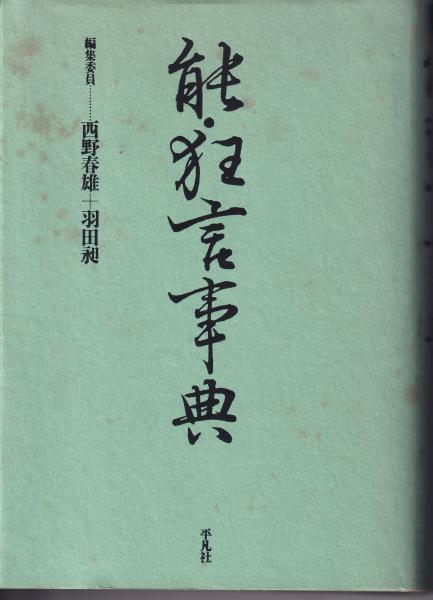 能・狂言事典
編集委員…………西野春雄+羽田昶
平凡社